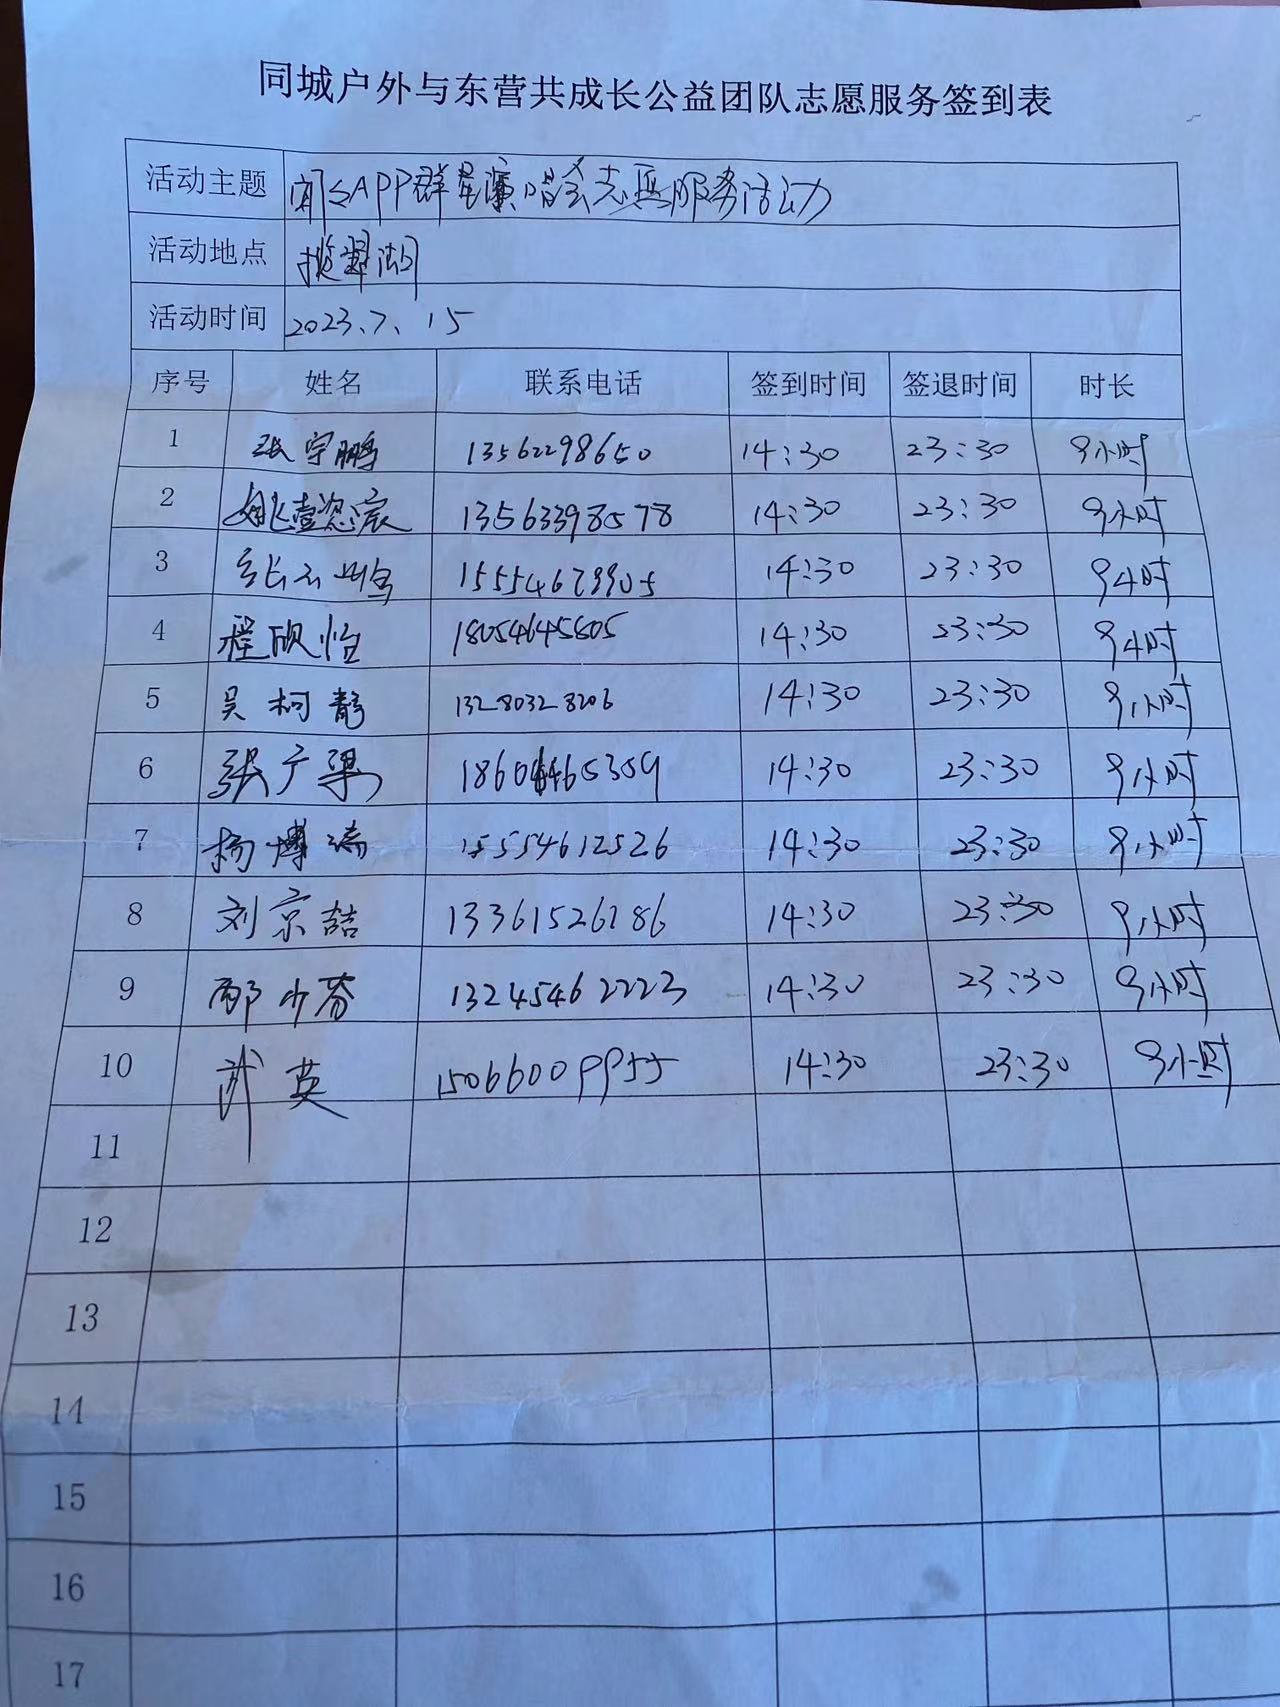 同城户外与东营共成长公益团队志愿服务签到表
活动主题 APP群星演唱会志愿服务活动
活动地点 揽翠湖
活动时间 2023.7.15
序号 姓名 联系电话 签到时间 签退时间 时长
1 张宇鹏 13562298650 14:30 23:30 9小时
2 姚壹宸 13563398578 14:30 23:30 9小时
3 14:30 23:30 9小时
4 程欣怡 18054645805 14:30 23:30 9小时
5 吴柯静 13280328206 14:30 23:30 9小时
6 张广梁 14:30 23:30 9小时
7 杨博 15554612526 14:30 23:30 9小时
8 刘京喆 13361526186 14:30 23:30 9小时
9 邴小芬 13245462223 14:30 23:30 9小时
10 武英 15066009955 14:30 23:30 9小时
11
12
13
14
15
16
17